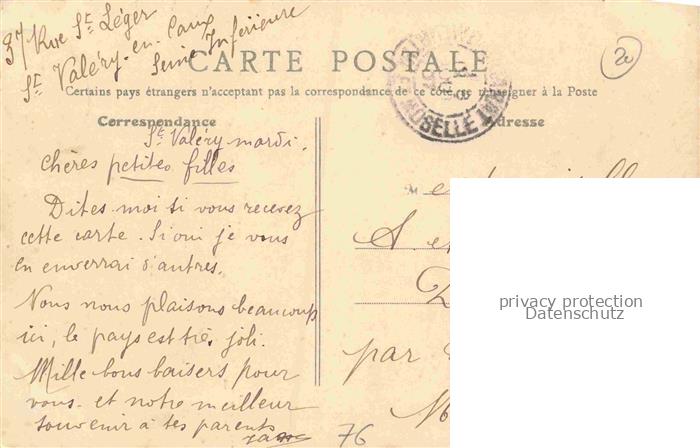 37 Rue St Léger
St Valéry-en-Caux
Seine Inférieure
CARTE POSTALE
20
Certains pays étrangers n'acceptent pas la correspondance de ce côté, se renseigner à la Poste
Correspondance
Adresse
MOSELLE
St Valéry mardi.
Chères petites filles
Dites-moi si vous recevez
cette carte. Si oui je vous
en enverrai d'autres.
Nous nous plaisons beaucoup
ici, le pays est très joli.
Mille bons baisers pour
vous. et notre meilleur
souvenir à tes parents
par
76
privacy protection
Datenschutz